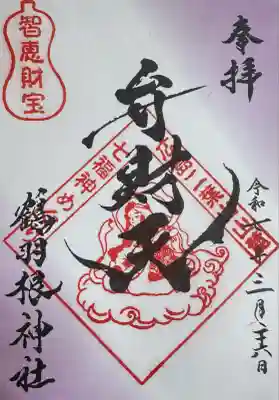 奉拝
智恵財宝
弁財天
七福神めぐ
令和
三月
六日
鶴羽根神社